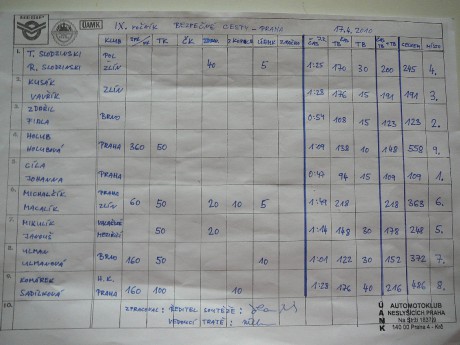 ÚAMK IX. ROČNÍK BEZPEČNÉ CESTY - PRAHA 17.4.2010
KLUB TK ČK LÍSTEK ČAS TB TB TB CELKEM MÍSTO
1. T. SLODZINSKI POL
R. SLODZINSKI ZLÍN 40 5 1:25 170 30 200 245 4.
2. KUSÁK
VAVŘÍK ZLÍN 1:28 176 15 191 191 3.
3. ZDAŘIL
FIDLA BRNO 0:54 108 15 123 123 2.
4. HOLUB
HOLUBOVÁ PRAHA 360 50 1:09 138 10 148 558 9.
5. CÍLA
JOHANNA PRAHA 0:47 94 15 109 109 1.
6. MICHALČÍK PRAHA
MACALÍK ZLÍN 60 50 20 10 5 1:49 218 218 363 6.
7. MIKULÍK VALAŠSKÉ
JANOUŠ MEZIŘÍČÍ 50 20 1:14 148 30 178 248 5.
8. ULMAN
ULMANOVÁ BRNO 160 50 10 1:01 122 30 152 372 7.
9. KOMÁREK H.K.
SADÍLKOVÁ PRAHA 160 100 10 1:28 176 40 216 486 8.
10. ZPRACOVAL: ŘEDITEL SOUTĚŽE:
VEDOUCÍ TRATĚ:
ÚAMK
AUTOMOTOKLUB
NESLYŠÍCÍCH PRAHA
Na Strži 1837/9
140 00 Praha 4 - Krč